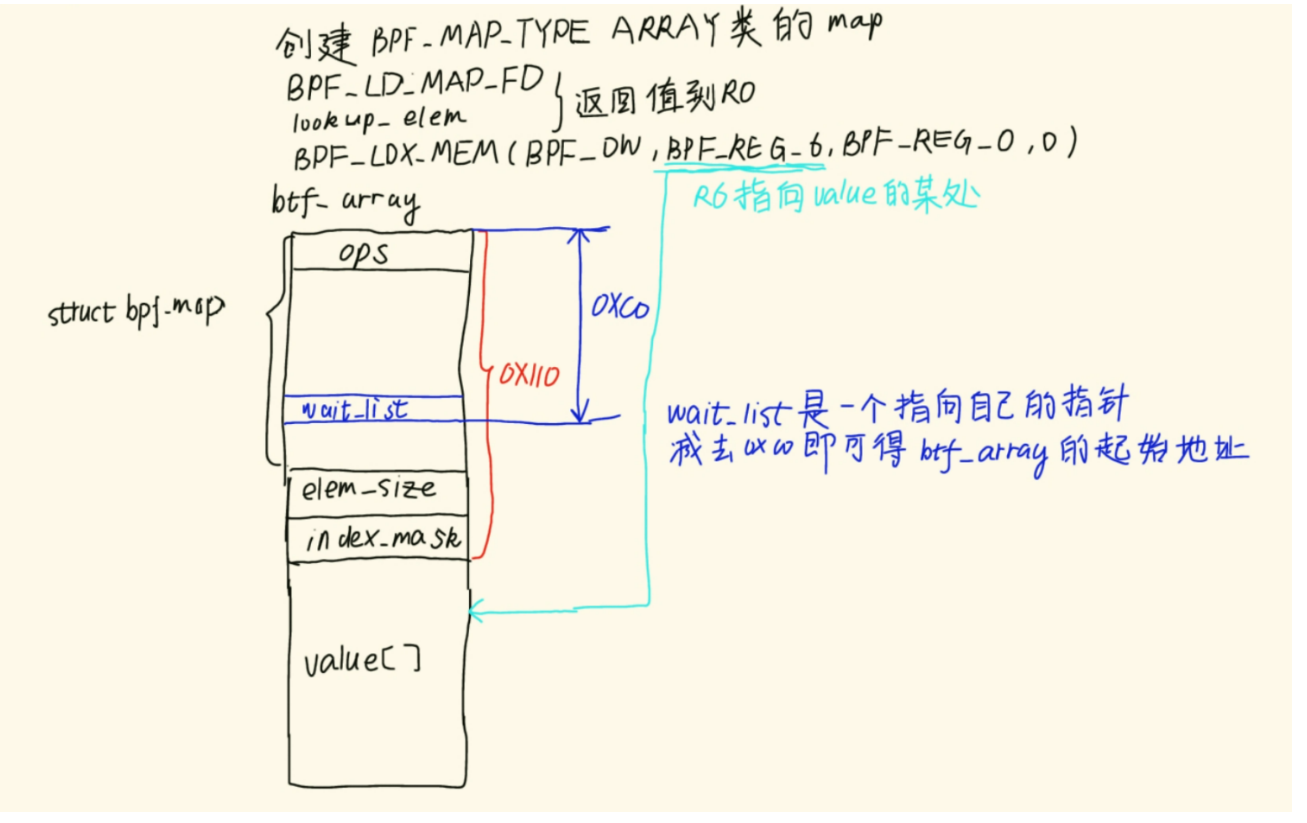 创建 BPF_MAP_TYPE ARRAY类的 map
BPF_LD_MAP_FD
lookup_elem
返回值到R0
BPF_LDX_MEM(BPF_DW,BPF_REG_6,BPF_REG_0,0)
R6指向value的某处
btf_array
ops
struct bpf_map
0XC0
0X110
wait_list
wait_list是一个指向自己的指针
减去0xc0即可得 btf_array的起始地址
elem_size
index_mask
value[]